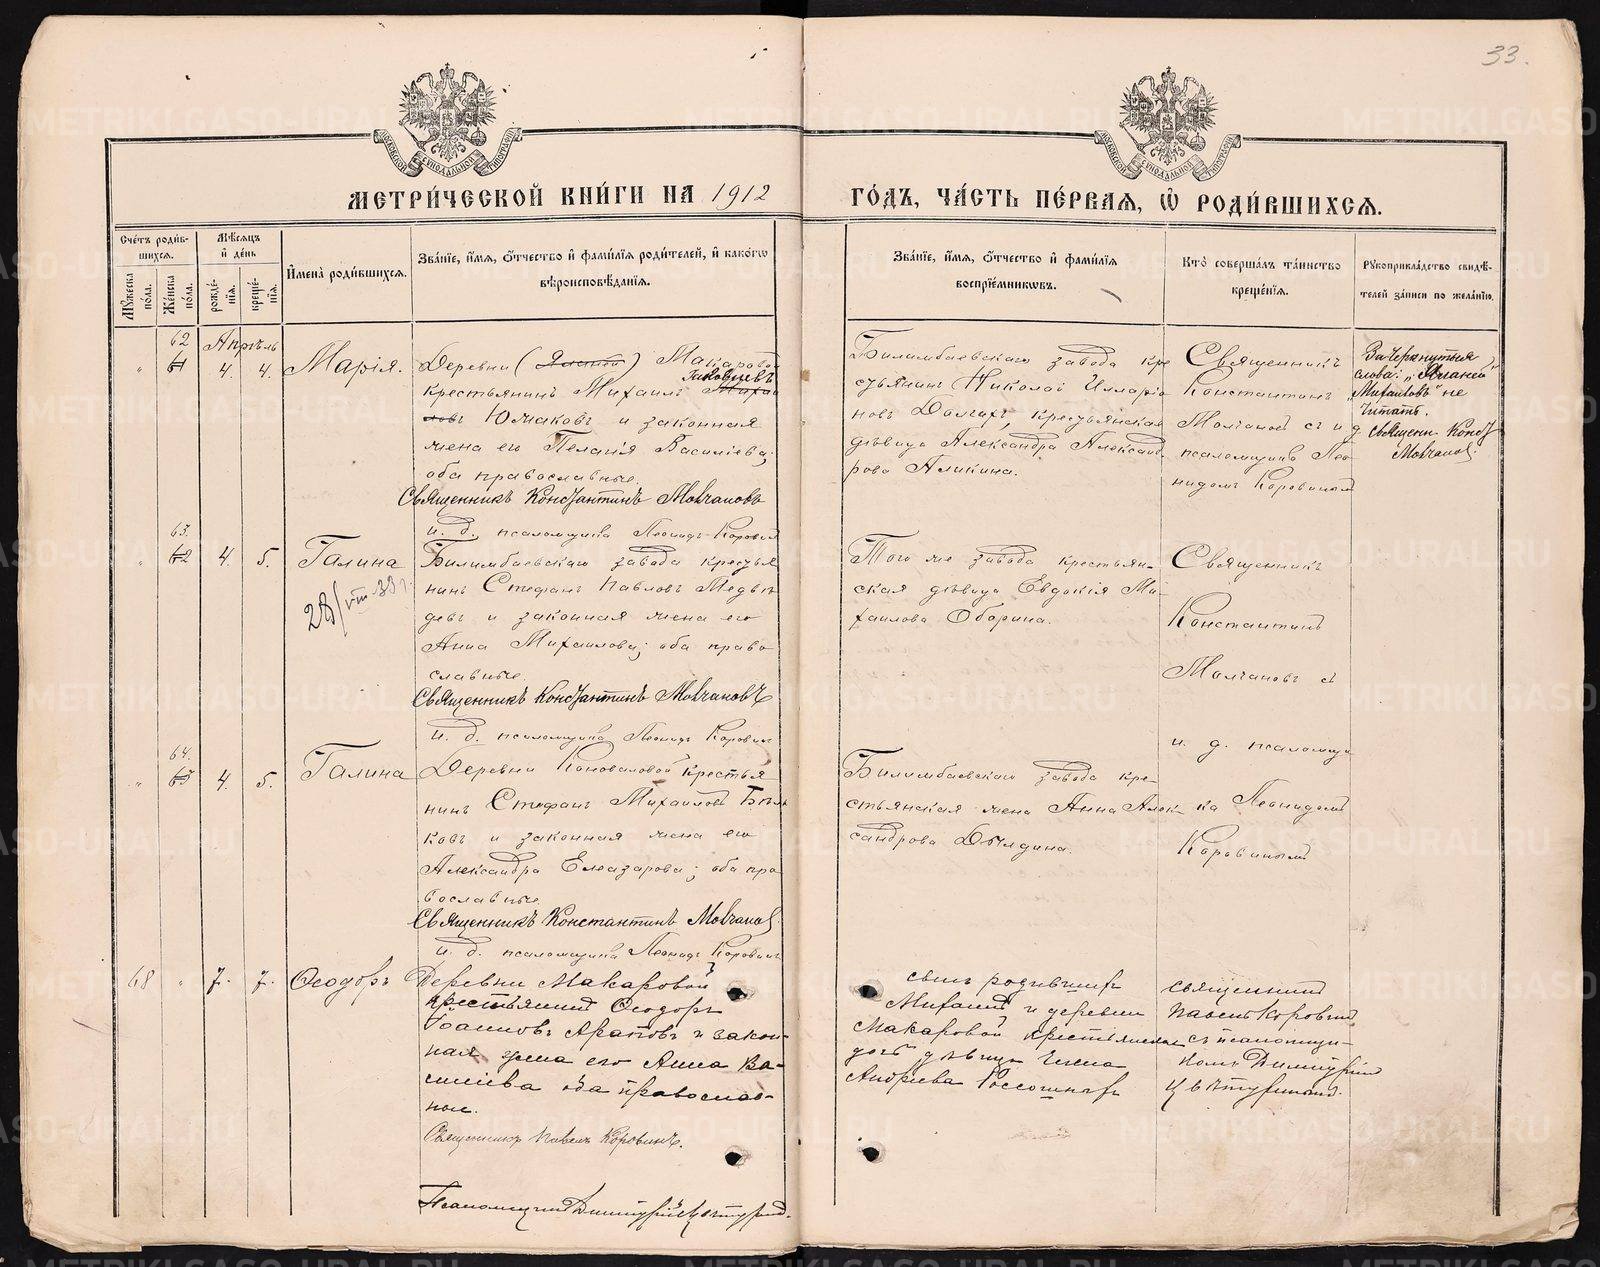 33.
МЕТРИ́ЧЕСКОЙ КНИ́ГИ НА 1912
ГО́ДЪ, ЧА́СТЬ ПЕ́РВАЯ, Ѡ РОДИ́ВШИХСЯ.
Сче́тъ роди́в-
шихся.
Му́жеска по́ла.
Же́нска по́ла.
Мѣ́сяцъ и де́нь
рожде́-нія.
креще́-нія.
И҆мена̀ роди́вшихся.
Зва́ніе, и҆́мя, о҆́тчество и҆ фами́лія роди́телей, и҆ како́гѡ
вѣроисповѣ́данія.
Зва́ніе, и҆́мя, о҆́тчество и҆ фами́лія
воспріе́мникѡвъ.
Кто̀ соверша́лъ та́инство
креще́нія.
Рукоприкла́дство свидѣ́-
телей за́писи по жела́нію.
Апрѣль
62
61
" 4. 4. Марія.
Деревни Макаровой
Яковлевъ
крестьянинъ Михаилъ
Юмаковъ и законная
жена его Пелагія Василіева;
оба православные.
Священникъ Константинъ Молчановъ
и. д. псаломщика Леонидъ Коровин
Билимбаевскаго завода кре
стьянинъ Николай Илларіо
новъ Долгихъ, крестьянская
дѣвица Александра Александ
рова Аликина.
Священникъ
Константинъ
Молчановъ съ и д
псаломщика Лео
нидомъ Коровинымъ
Зачеркнутыя
слова:
"Михаиловъ" не
читать.
Священн. Конст
Молчанов.
63.
62
" 4. 5. Галина
28/VIII 33 г.
Билимбаевскаго завода крестья
нинъ Стефанъ Павловъ Медвѣ
девъ и законная жена его
Анна Михаилова; оба право
славные.
Священникъ Константинъ Молчановъ
и. д. псаломщика Леонидъ Коровин
Того же завода крестьян-
ская дѣвица Евдокія Ми-
хаилова Оборина.
Священникъ
Константинъ
Молчановъ съ
и. д. псаломщи
ка Леонидомъ
Коровинымъ
64.
63
" 4. 5. Галина
Деревни Коноваловой крестья
нинъ Стефанъ Михаиловъ Бѣл
ковъ и законная жена его
Александра Елеазарова; оба пра
вославные.
Священникъ Константинъ Молчанов
и. д. псаломщика Леонидъ Коровин
Билимбаевскаго завода кре-
стьянская жена Анна Алек-
сандрова Дылдина.
68 " 7. 7. Ѳеодоръ
Деревни Макаровой
крестьянинъ Ѳеодоръ
Іоанновъ Араповъ и закон-
ная жена его Анна Ва-
силіева оба православ-
ные.
Священникъ Павелъ Коровинъ.
Псаломщикъ Димитрій
сынъ родившихъ
и деревни
Макаровой крестьянская
дѣвица
Андреева
Священникъ
Павелъ Коровинъ
съ псаломщи-
комъ Димитріем